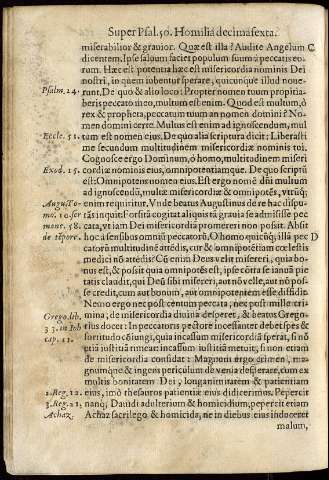 Super Psal. 50. Homilia decimasexta.
miserabilior & gravior. Quæ est illa? Audite Angelum
dicentem. Ipse salvum faciet populum suum à peccatis eo-
rum. Hæc est potentia hæc est misericordia nominis Dei
nostri, in quem iubentur sperare, quicunque illud nove-
Psalm. 24. runt. De quo & alio loco: Propter nomen tuum propitia-
beris peccato meo, multum est enim. Quod est multum, ô
rex & propheta, peccatum tuum an nomen domini? No-
men domini certe. Multus est enim ad ignoscendum, mul
Eccle. 51. tum est nomen eius. De quo alia scriptura dicit: Liberasti
me secundum multitudinem misericordiæ nominis tui.
Cognosce ergo Dominum, ô homo, multitudinem miseri
Exod. 15. cordiæ nominis eius, omnipotentiamque. De quo scriptū
est: Omnipotens nomen eius. Est ergo nomē dñi multum
ad ignoscendū, multæ misericordiæ & omnipotēs, vtrūq;
Augusto- enim requiritur. Vnde beatus Augustinus de re hac dispu-
mo. 10. ser tās inquit: Forsitā cogitat aliquis tā grauia se admisisse pec
mone. 58. cata, vt iam Dei misericordia promereri non possit. Absit
de tēpore. hoc à sensibus omniū peccatorū. O homo quicūq; illā pec
catorū multitudinē attēdis, cur & omnipotētiam cœlestis
medici nō attēdis? Cū enim Deus velit misereri, quia bo-
nus est, & possit quia omnipotēs est, ipse cōtra se ianuā pie
tatis claudit, qui Deū sibi misereri, aut nō velle, aut nō pos-
se credit, cum aut bonum, aut omnipotentem esse diffidit.
Nemo ergo post centum peccata, nec post mille crimi
Grego. lib. na, de misericordia diuina desperet, & beatus Grego-
33. in Iob tius docet: In peccatoris pectore incessanter debet spes &
cap. 11. formido cōiungi, quia incassum misericordiā sperat, si nō
etiā iustitiā timeat: incassū iustitiā metuit, si non etiā
de misericordia confidat: Magnum ergo crimen, ma-
gnumque & ingens periculum de venia desperare, cum ex
multis bonitatem Dei, longanimitatem & patientiam
2. Reg. 12. eius, imò thesauros patientiæ eius didicerimus. Pepercit
3. Reg. 21. nanq; Dauidi adulterium & homicidium, pepercit etiam
Achaz. Achaz sacrilego & homicida, ne in diebus eius induceret
malum,